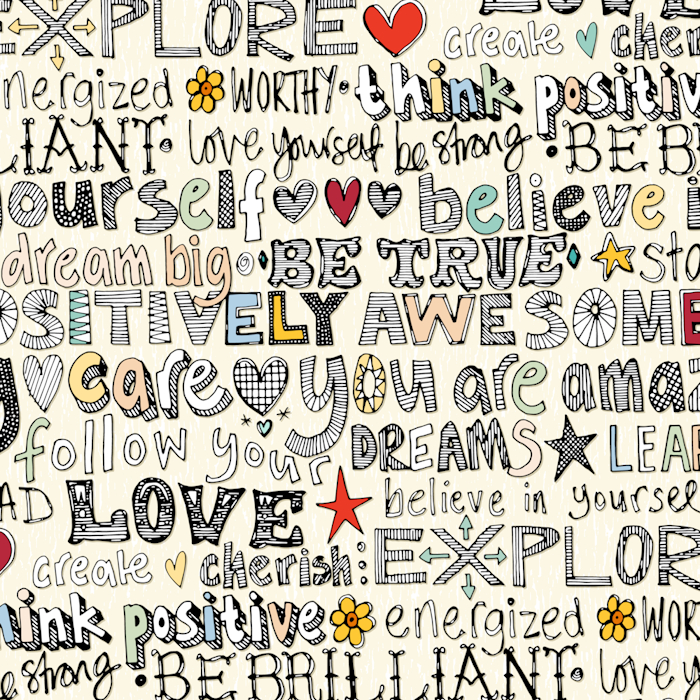 EXPLORE create cher
energized WORTHY think positiv
LIANT love yourself be strong BE B
yourself believe i
dream big BE TRUE sta
OSITIVELY AWESOME
y care you are ama
follow your DREAMS LEAR
AD LOVE believe in yourself
create cherish: EXPLOR
hink positive energized WOR
e strong BE BRILLIANT love y